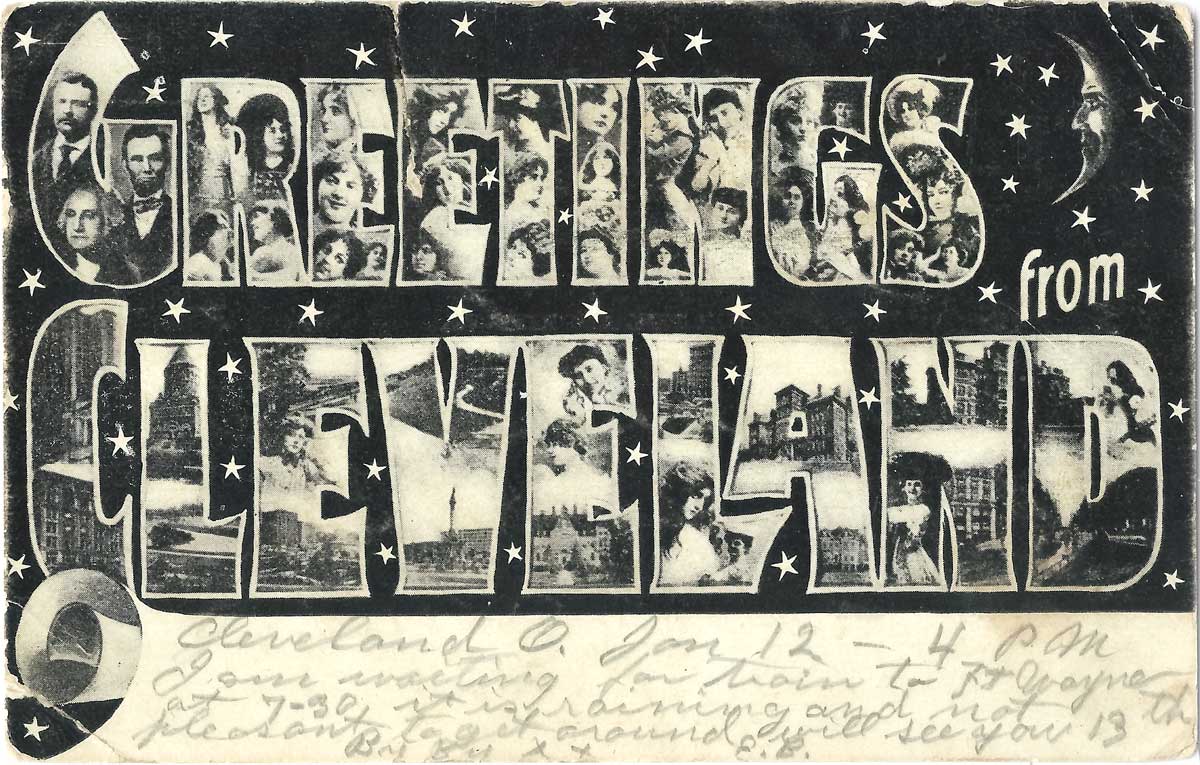 GREETINGS
from
CLEVELAND
Cleveland O. Jan 12 - 4 P.M
I am waiting for train to Ft Wayne
at 7-30, it is raining and not
pleasant to around I will see you 13 th
By By x x E.E.